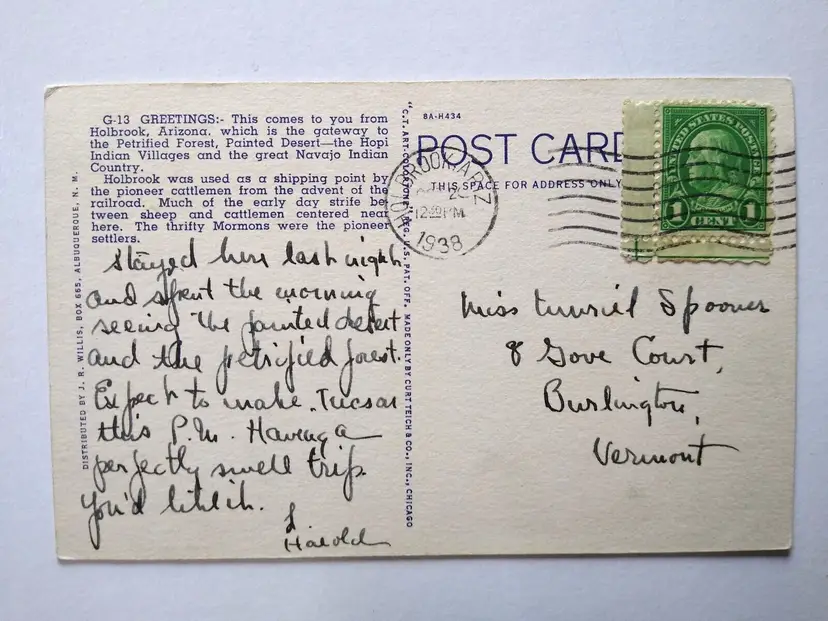 G-13 GREETINGS:- This comes to you from
Holbrook, Arizona, which is the gateway to
the Petrified Forest, Painted Desert—the Hopi
Indian Villages and the great Navajo Indian
Country.
Holbrook was used as a shipping point by
the pioneer cattlemen from the advent of the
railroad. Much of the early day strife be-
tween sheep and cattlemen centered near
here. The thrifty Mormons were the pioneer
settlers.
Stayed here last night
and spent the morning
seeing the painted desert
and the petrified forest.
Expect to make Tucson
this P.M. Having a
perfectly swell trip.
You'd like it.
Harold
DISTRIBUTED BY J. R. WILLIS, BOX 665, ALBUQUERQUE, N. M.
"C. T. ART-COLORTONE" REG. U. S. PAT. OFF. MADE ONLY BY CURT TEICH & CO., INC., CHICAGO
8A-H434
POST CARD
THIS SPACE FOR ADDRESS ONLY
HOLBROOK ARIZ
12 PM
1938
UNITED STATES POSTAGE
1 CENT 1
Miss Muriel Spooner
8 Gove Court,
Burlington,
Vermont